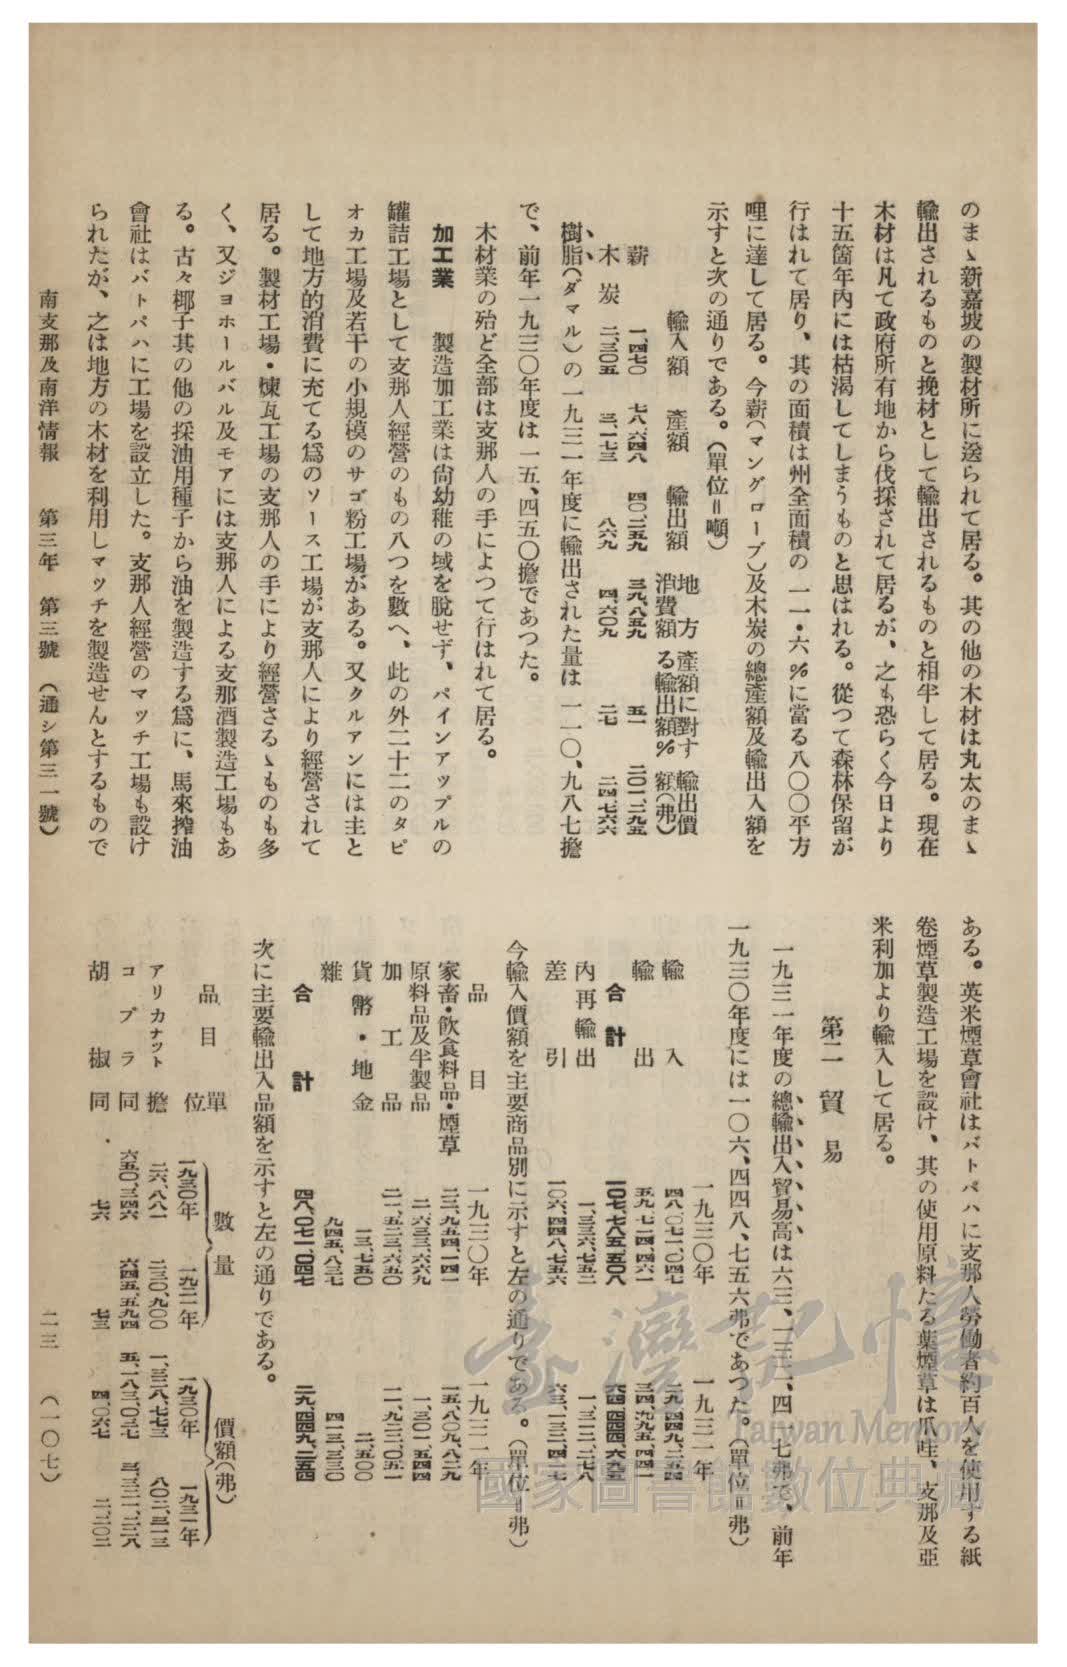 のまゝ新嘉坡の製材所に送られて居る。其の他の木材は丸太のまゝ
輸出されるものと挽材として輸出されるものと相半して居る。現在
木材は凡て政府所有地から伐採されて居るが、之も恐らく今日より
十五箇年內には枯渴してしまうものと思はれる。從つて森林保留が
行はれて居り、其の面積は州全面積の一一・六%に當る八〇〇平方
哩に達して居る。今薪(マングローブ)及木炭の總產額及輸出入額を
示すと次の通りである。(單位=噸)
輸入額 產額 輸出額 地方消費額 產額に對する輸出額% 輸出價額(弗)
薪 一、四七〇 七八、六四八 四〇、二五九 三九、八五九 五一 二〇一、二九五
木炭 二、三〇五 三、一七三 八六九 四、六〇九 二七 二四、七六六
樹脂(ダマル)の一九三一年度に輸出された量は一一〇、九八七擔
で、前年一九三〇年度は一五、四五〇擔であつた。
木材業の殆ど全部は支那人の手によつて行はれて居る。
加工業 製造加工業は尙幼稚の域を脫せず、パインアップルの
罐詰工場として支那人經營のもの八つを數へ、此の外二十二のタピ
オカ工場及若干の小規模のサゴ粉工場がある。又クルアンには主と
して地方的消費に充てる爲のソース工場が支那人により經營されて
居る。製材工場・煉瓦工場の支那人の手により經營さるゝものも多
く、又ジョホールバル及モアには支那人による支那酒製造工場もあ
る。古々椰子其の他の採油用種子から油を製造する爲に、馬來搾油
會社はバトパハに工場を設立した。支那人經營のマッチ工場も設け
られたが、之は地方の木材を利用しマッチを製造せんとするもので
ある。英米煙草會社はバトパハに支那人勞働者約百人を使用する紙
卷煙草製造工場を設け、其の使用原料たる葉煙草は爪哇、支那及亞
米利加より輸入して居る。
第二 貿易
一九三一年度の總輸出入貿易高は六三、一三二、四一七弗で、前年
一九三〇年度には一〇六、四四八、七五六弗であつた。(單位=弗)
一九三〇年 一九三一年
輸入 四八、〇七一、〇四七 二九、四四九、二五四
輸出 五九、七一四、四六一 三四、九九五、四四一
合計 一〇七、七八五、五〇八 六四、四四四、六九五
內再輸出 一、三三六、七五二 一、三一二、二七八
差引 一〇六、四四八、七五六 六三、一三二、四一七
今輸入價額を主要商品別に示すと左の通りである。(單位=弗)
品目 一九三〇年 一九三一年
家畜・飮食料品・煙草 二三、九五四、一四一 一五、八〇九、八二九
原料品及半製品 二、六三三、六六九 一、三〇一、五四四
加工品 二一、五二三、六五〇 一一、九二三、〇五一
貨幣・地金 一三、七五〇 二、五〇〇
雜 九四五、八三七 四一三、三三〇
合計 四八、〇七一、〇四七 二九、四四九、二五四
次に主要輸出入品額を示すと左の通りである。
品目 單位 數量 價額(弗)
一九三〇年 一九三一年 一九三〇年 一九三一年
アリカナット 擔 二六、八八一 二三〇、九〇〇 一、三二八、七七三 八〇二、三一三
コプラ 同 六五〇、三四六 六四五、五九四 五、一八三、〇三七 三、三二一、三二八
胡椒 同 七六 七三 四、〇六七 二、二〇二
南支那及南洋情報 第三年 第三號 (通シ第三一號) 二三 (一〇七)
臺灣記憶
Taiwan Memory
國家圖書館數位典藏